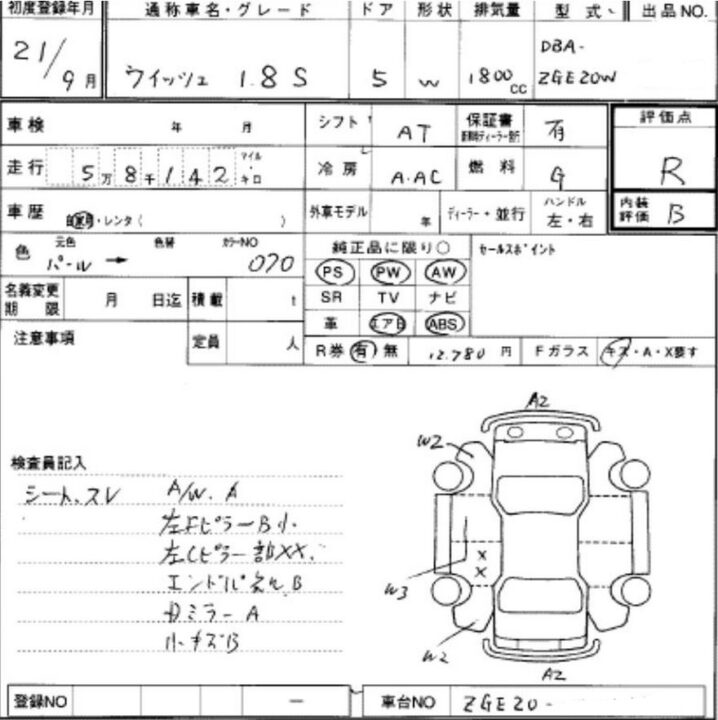 初度登録年月 通称車名・グレード ドア 形状 排気量 型式 出品NO.
21/9月 ウイッシュ 1.8 S 5 W 1800cc DBA- ZGE20W
車検 年 月 シフト AT 保証書 有 評価点
走行 5万8千142 マイル・キロ 冷房 A.AC 燃料 G R
車歴 自家用・レンタ( ) 外車モデル 年 ディーラー・並行 ハンドル 左・右 内装評価 B
色 元色 パール → 色替 カラーNO 070 純正品に限り○ セールスポイント
PS PW AW
名義変更期限 月 日迄 積載 t SR TV ナビ
革 エアB ABS
注意事項 定員 人 R券 有 無 12,780 円 Fガラス キズ・A・X要す
A2
W2
検査員記入
シート、スレ A/W. A
左Fピラー B小.
左Cピラー部XX.
エンドパネル B
ミラー A
小キズB
X
X
W3
W2
A2
登録NO ー 車台NO ZGE20-